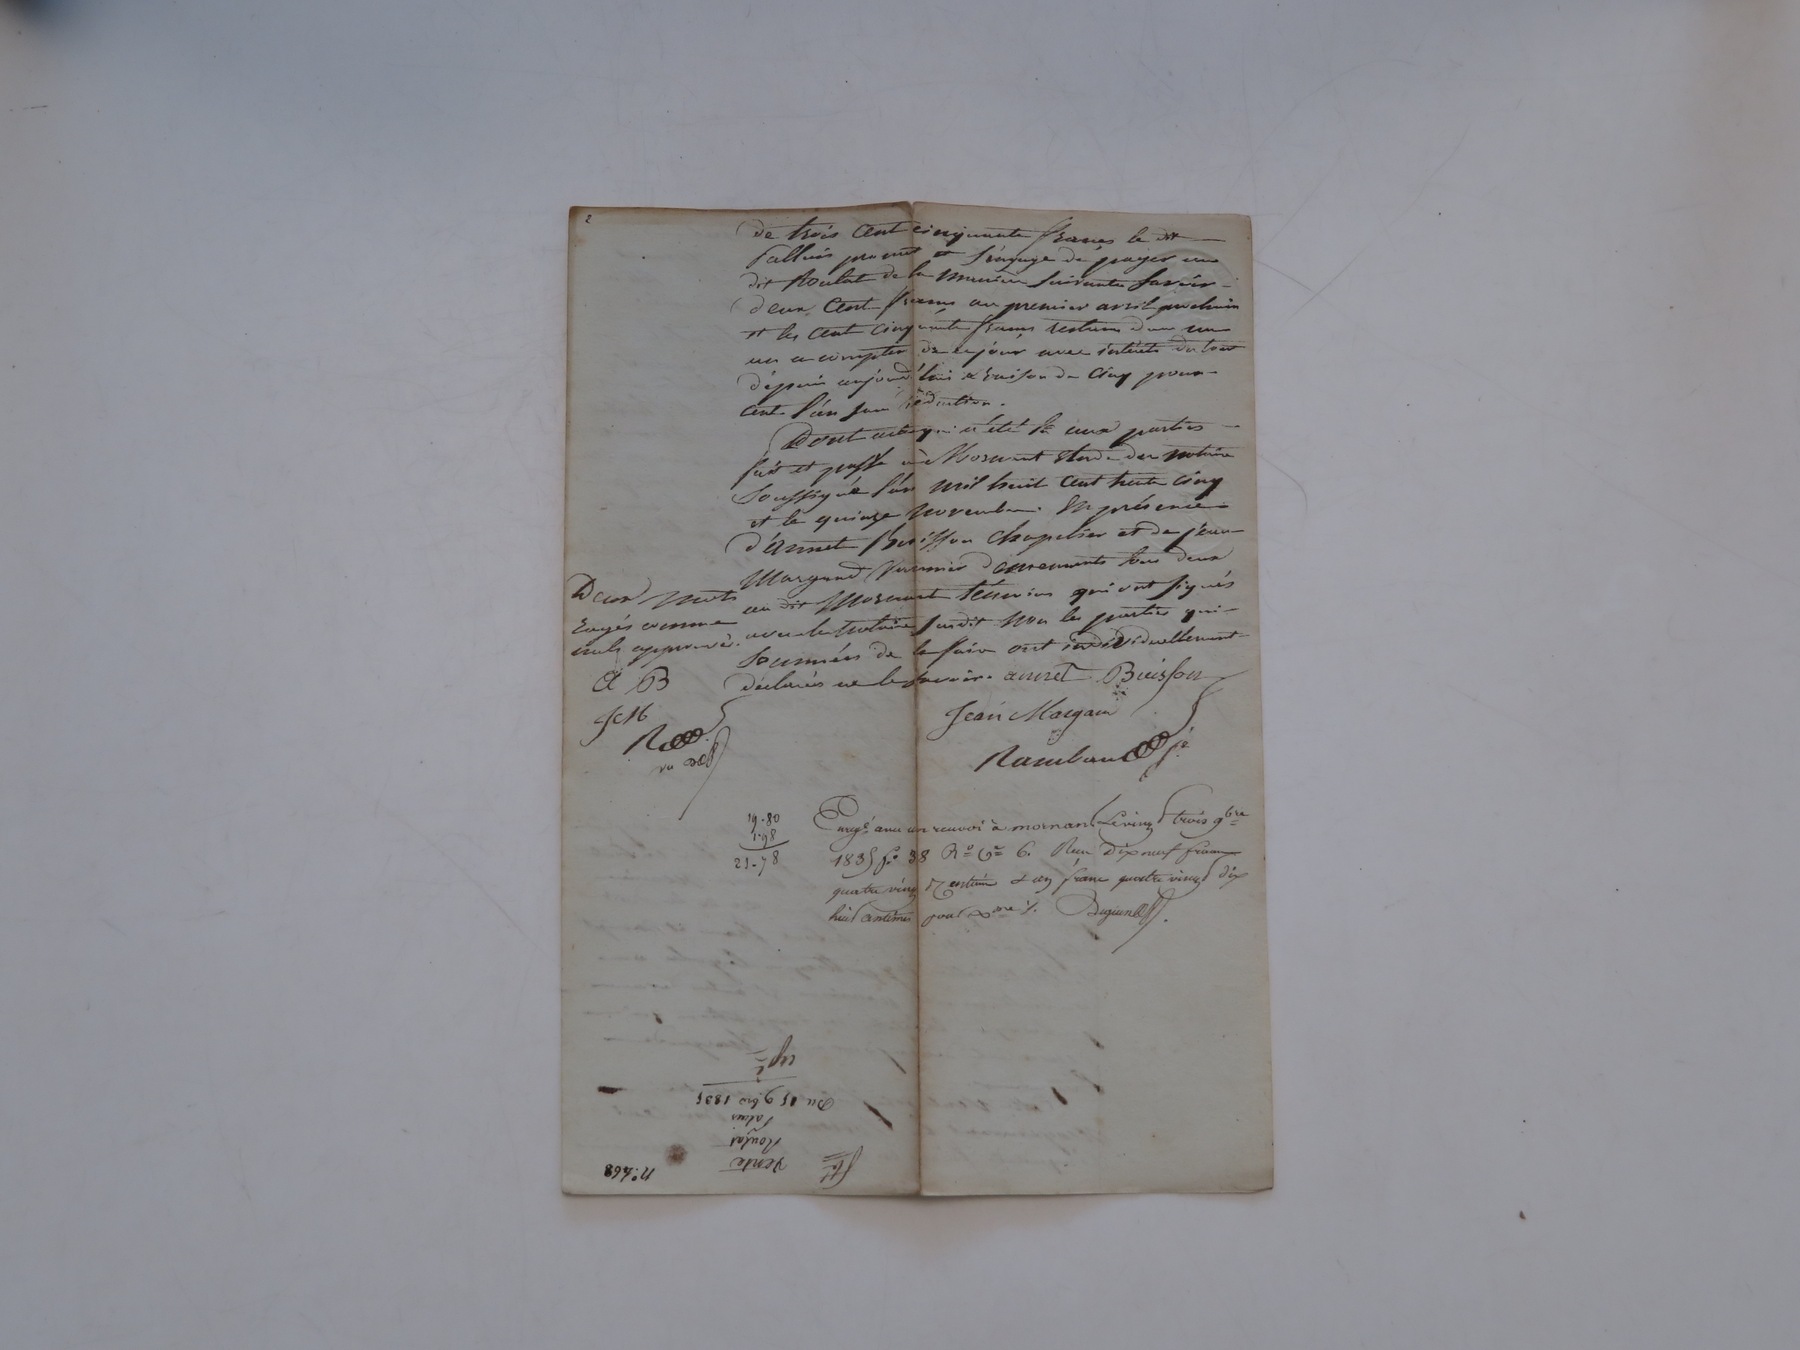 2
de trois Cent cinquante francs le dit
fallais promet et s'engage de payer au
dit Roulat de la maniere suivante savoir
deux Cent francs au premier avril prochain
et les Cent cinquante francs restens dans un
an a compter de ce jour avec intérêts du tout
depuis aujourd'hui a raison de Cinq pour
cent l'an sans réduction.
Dont acte qui a été lu aux parties
fait et passé à Mornant Etude du notaire
soussigné l'an mil huit cent trente cinq
et le quinze novembre. En présence
d'annet Buisson Chapelier et de jean
Margand demeurants tous deux
au dit Mornant témoins qui ont signés
avec le Notaire susdit non les parties qui
sommées de le faire ont individuellement
déclarés ne le savoir. annet Buisson
Jean Margan
Rambaud
Deux mots
rayés comme
nuls approuvé.
A B
J M
R
19.80
1.98
21.78
Enregé avec un renvoi à mornant Le vingt trois 9bre
1835 fo 38 Ro Ce 6. Reçu Dix neuf francs
quatre vingt centimes & un franc quatre vingt dix
huit Centimes pour
N° 468
Vente
Roulat
Du 15 9bre 1835